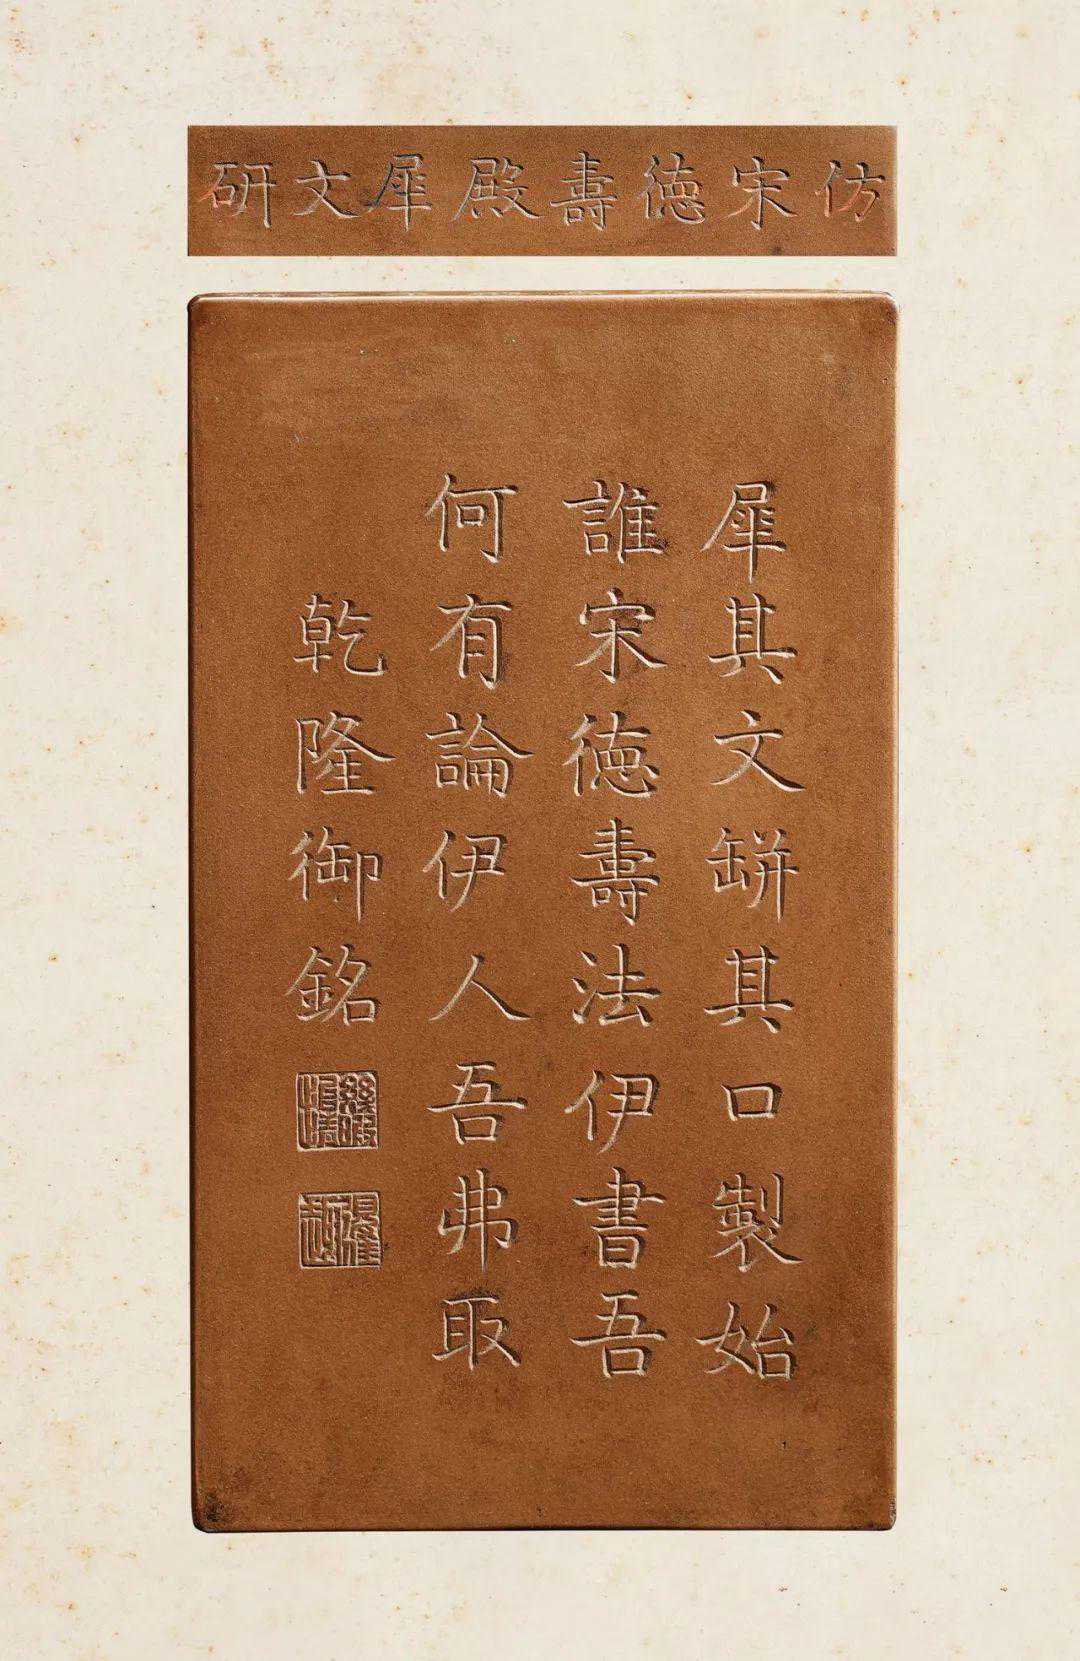 仿宋徳壽殿犀文研
犀其文缾其口製始
誰宋徳壽法伊書吾
何有論伊人吾弗取
乾隆御銘
幾暇怡情